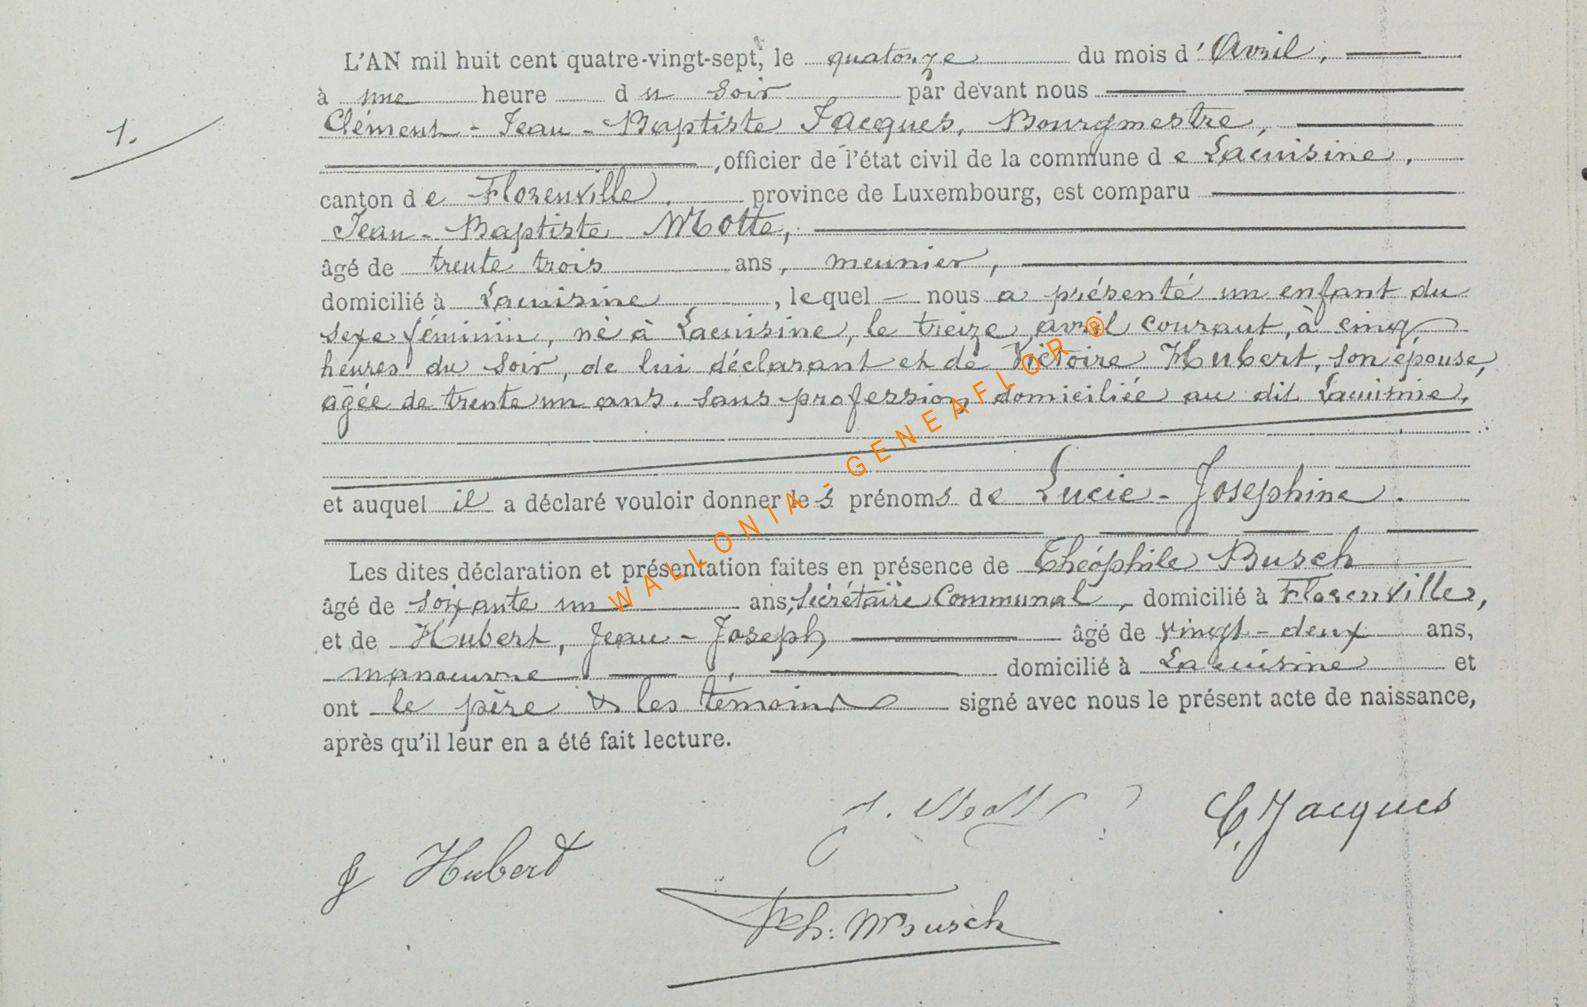 L'AN mil huit cent quatre-vingt-sept, le quatorze du mois d' Avril,
1.
à une heure du soir par devant nous
Clément - Jean - Baptiste Jacques, Bourgmestre,
, officier de l'état civil de la commune de Lacuisine,
canton de Florenville, province de Luxembourg, est comparu
Jean - Baptiste Motte,
âgé de trente trois ans, meunier,
domicilié à Lacuisine, lequel – nous a présenté un enfant du
sexe féminin, né à Lacuisine, le treize avril courant, à cinq
heures du soir, de lui déclarant et de Victoire Hubert, son épouse,
âgée de trente un ans. sans profession domiciliée au dit Lacuisine,
et auquel il a déclaré vouloir donner les prénoms de Lucie - Josephine.
Les dites déclaration et présentation faites en présence de Théophile Busch
âgé de soixante un ans, Secrétaire Communal, domicilié à Florenville,
et de Hubert, Jean - Joseph âgé de vingt - deux ans,
manoeuvre, domicilié à Lacuisine et
ont le père & les témoins signé avec nous le présent acte de naissance,
après qu'il leur en a été fait lecture.
WALLONIA - GENEAFLOR ®
J. Motte
C. Jacques
J Hubert
Th: Busch